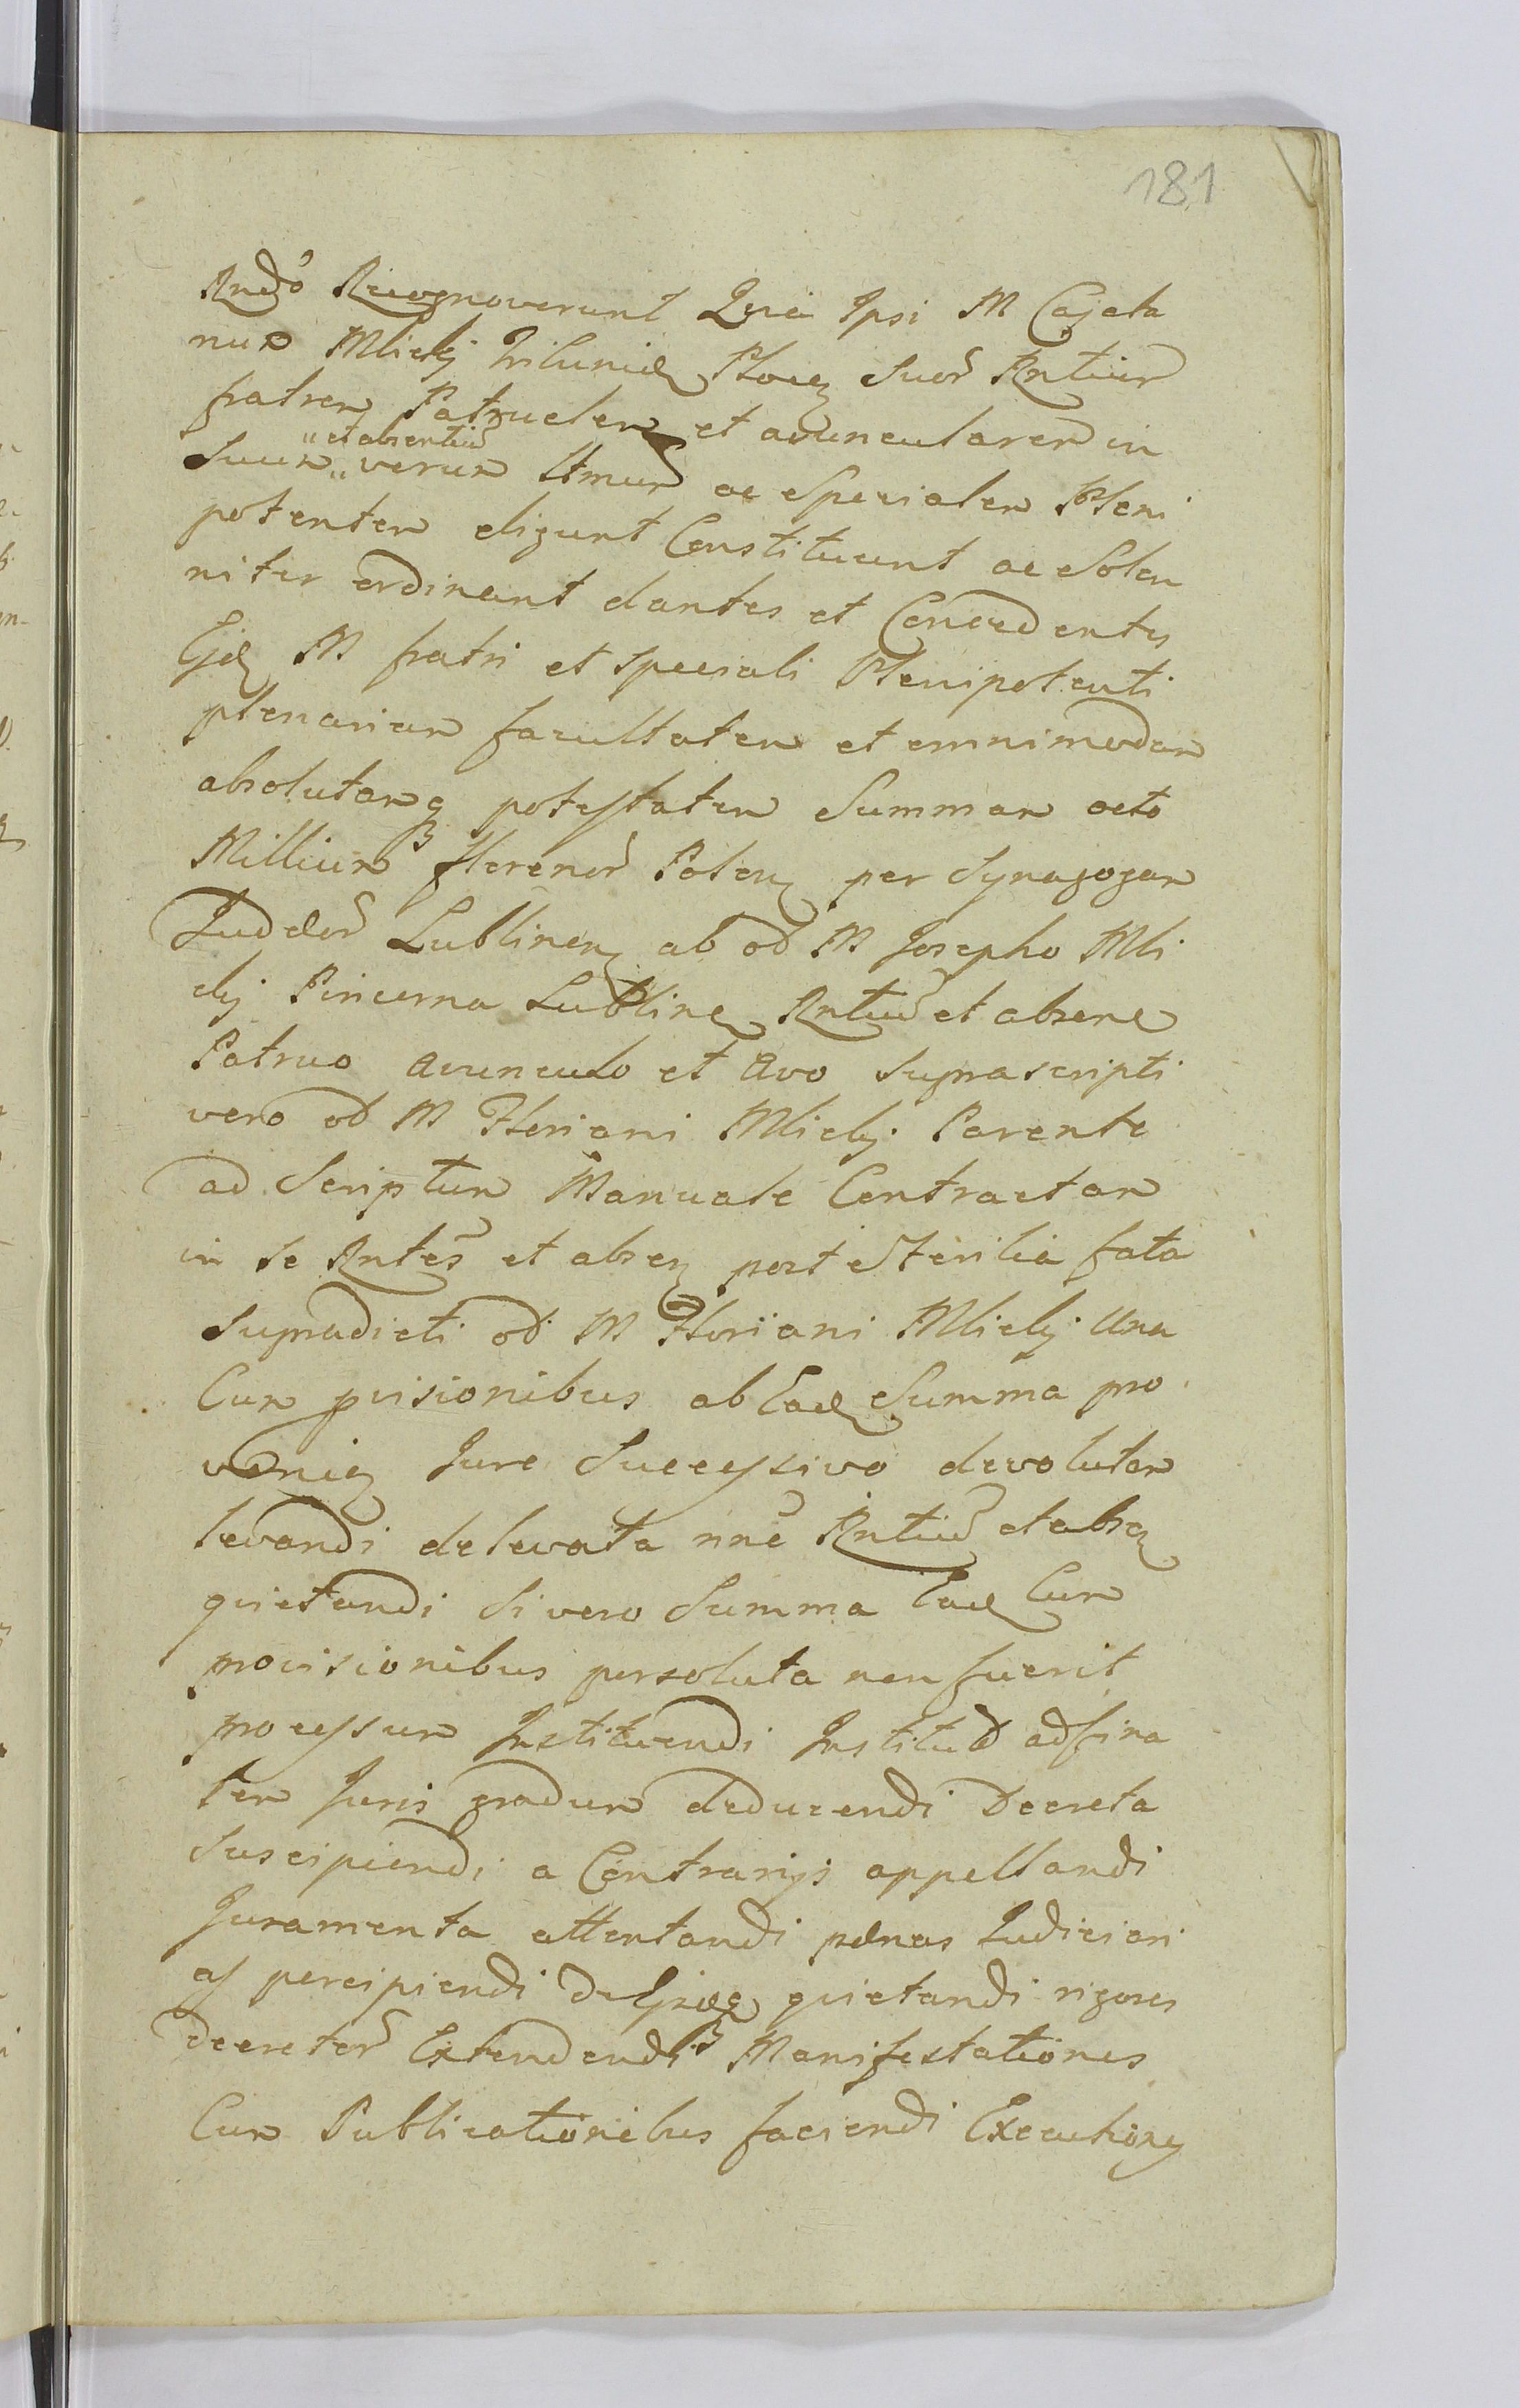 181
Rndo Recognoverunt Quia Ipsi M Cajeta
num Mlicki Tribunid Plocen Suor Rntium
fratrem Patruelem et avuncularem in
"et absentiu
Suum " verum Ltmum ac Specialem Pleni
potentem eligunt Constituunt ac Solen
niter ordinant dantes et Concedentes
Ejd M fratri et speciali Plenipotenti
plenariam facultatem et omnimodam
absolutamq potestatem Summam octo
Millium florenor Polen per Synagogam
Judæor Lublinen ab od M Josepho Mli
cki Pincerna Lubline Rntiu et absene
Patruo avunculo et avo suprascripti
vero od M Floriani Mlicki Parente
ad Scriptum Manuale Contractam
in se Rntes et absen post sterilia fata
supradicti od M Floriani Mlicki una
Cum prisionibus ab Ead Summa pro
venien Jure Successivo devolutam
levandi de levata nne Rntiu et absen
quietandi si vero Summa Ead Cum
provisionibus persoluta non fuerit
processum Instituendi Institutu ad fina
lem Juris gradum deducendi Decreta
Suscipiendi a Contrarijs appellandi
Juramenta attentandi pænas Judiciari
as percipiendi de Ejsdq quietandi rigores
decretor Extendendi Manifestationes
Cum Publicationibus faciendi Executiones